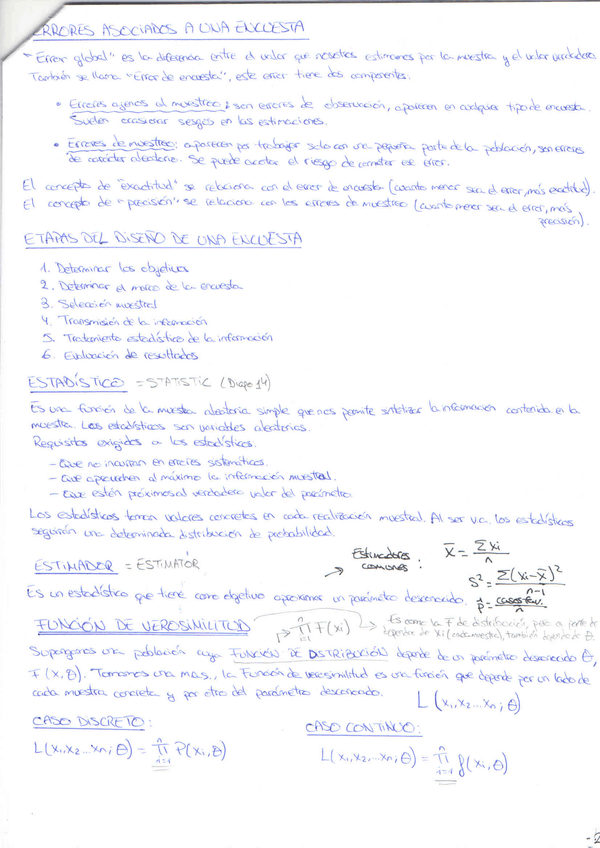 ERRORES ASOCIADOS A UNA ENCUESTA
- "Error global" es la diferencia entre el valor que nosotros estimamos por la muestra y el valor verdadero.
También se llama "Error de encuesta", este error tiene dos componentes:
• Errores ajenos al muestreo: son errores de observación, aparecen en cualquier tipo de encuesta.
Suelen ocasionar sesgos en las estimaciones.
• Errores de muestreo: aparecen por trabajar solo con una pequeña parte de la población, son errores
de carácter aleatorio. Se puede acotar el riesgo de cometer ese error.
El concepto de "exactitud" se relaciona con el error de encuesta (cuanto menor sea el error, más exactitud).
El concepto de "precisión" se relaciona con los errores de muestreo (cuanto menor sea el error, más
precisión).
ETAPAS DEL DISEÑO DE UNA ENCUESTA
1. Determinar los objetivos
2. Determinar el marco de la encuesta
3. Selección muestral
4. Transmisión de la información
5. Tratamiento estadístico de la información
6. Evaluación de resultados
ESTADÍSTICO = STATISTIC (Diapo 14)
Es una función de la muestra aleatoria simple que nos permite sintetizar la información contenida en la
muestra. Los estadísticos son variables aleatorias.
Requisitos exigidos a los estadísticos:
- Que no incurran en errores sistemáticos.
- Que aprovechen al máximo la información muestral.
- Que estén próximos al verdadero valor del parámetro.
Los estadísticos toman valores concretos en cada realización muestral. Al ser v.a. los estadísticos
seguirán una determinada distribución de probabilidad.
ESTIMADOR = ESTIMATOR
→ Estimadores comunes:
x̄ = Σxi / n
S² = Σ(xi-x̄)² / n-1
p̂ = casos fav. / n
Es un estadístico que tiene como objetivo aproximar un parámetro desconocido.
FUNCIÓN DE VEROSIMILITUD
→ ∏ F(xi) → Es como la F de distribución, pero a parte de
depender de xi (cada muestra), también depende de θ.
Supongamos una población cuya FUNCIÓN DE DISTRIBUCIÓN depende de un parámetro desconocido θ,
F(x,θ). Tomamos una m.a.s., la Función de verosimilitud es una función que depende por un lado de
cada muestra concreta y por otro del parámetro desconocido. L(x₁,x₂...xn;θ)
CASO DISCRETO:
L(x₁,x₂...xn;θ) = ∏ⁿᵢ₌₁ P(xi,θ)
CASO CONTINUO:
L(x₁,x₂,...xn;θ) = ∏ⁿᵢ₌₁ f(xi,θ)